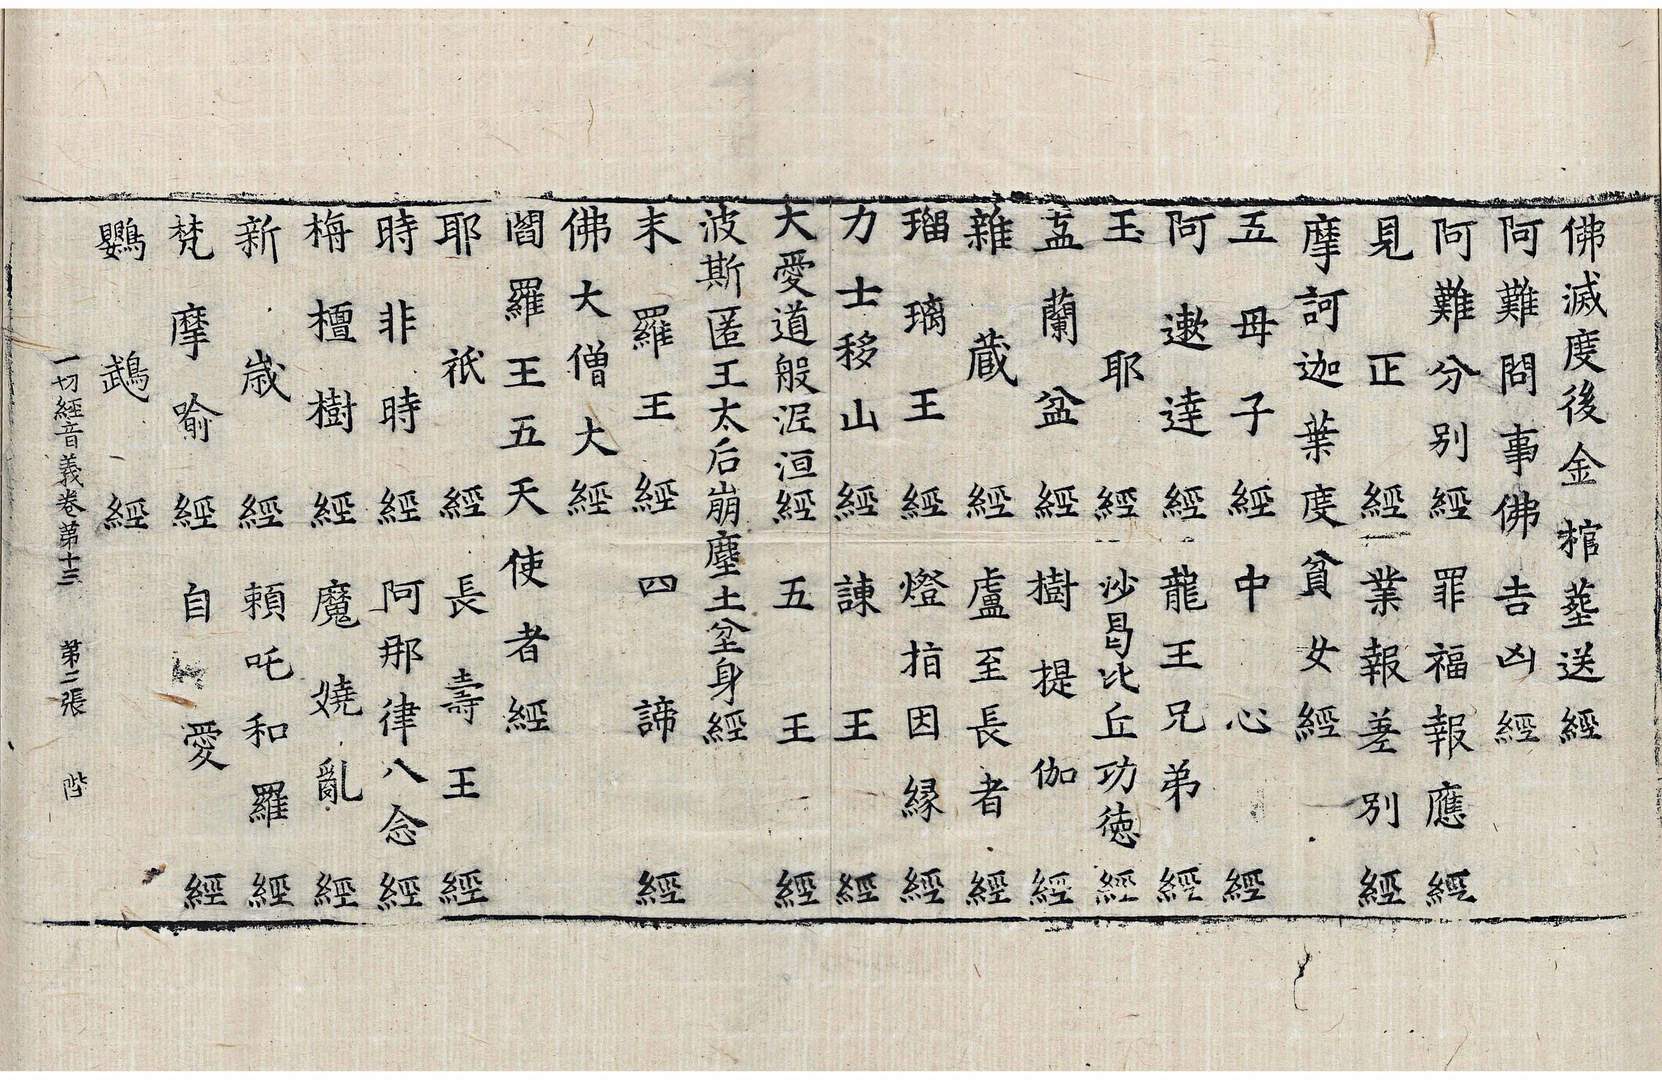 佛滅度後金棺葬送經
阿難問事佛吉凶經
阿難分别經 罪福報應經
見正經 業報差别經
摩訶迦葉度貧女經
五母子經 中心經
阿遬達經 龍王兄弟經
玉耶經 沙曷比丘功徳經
盂蘭盆經 樹提伽經
雜藏經 盧至長者經
瑠璃王經 燈指因縁經
力士移山經 諫王經
大愛道般泥洹經 五王經
波斯匿王太后崩塵土坌身經
末羅王經 四諦經
佛大僧大經
閻羅王五天使者經
耶祇經 長壽王經
時非時經 阿那律八念經
栴檀樹經 魔嬈亂經
新歳經 頼吒和羅經
梵摩喻經 自愛經
鸚鵡經
一切經音義卷第十三 第二張 階